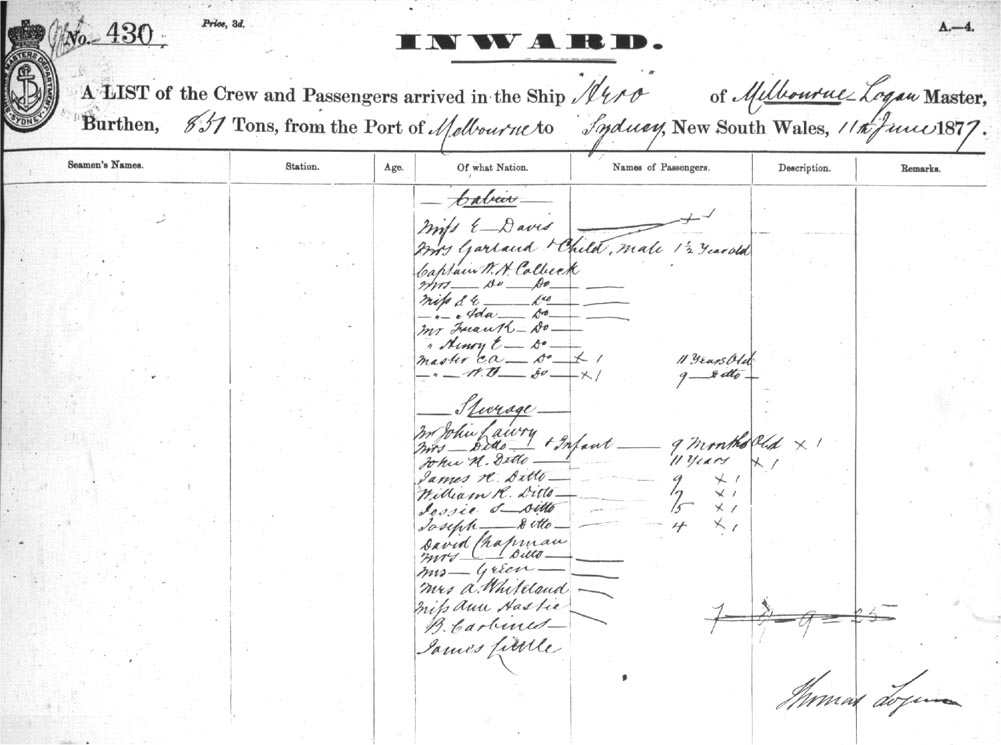 No. 430.
Price, 3d.
A.—4.
INWARD.
SYDNEY
A LIST of the Crew and Passengers arrived in the Ship "Hero" of Melbourne Logan Master,
Burthen, Tons, from the Port of Melbourne to Sydney, New South Wales, 11th June 1877.
Seamen's Names. Station. Age. Of what Nation. Names of Passengers. Description. Remarks.
Cabin
Miss E Davis + 1
Mrs Garland & Child, male 1½ Year old
Captain W. H. Colbeck
Mrs Do Do
Miss S E Do
" " Ida Do
Mr Frank Do
" Henry E Do
Master C A Do + 1 11 Years Old
" W. H Do + 1 9 Ditto
Steerage
Mr John Lawry
Mrs Ditto & Infant 9 Months Old × 1
John H. Ditto 11 Years × 1
James H. Ditto 9 × 1
William R. Ditto 7 × 1
Jessie S Ditto 5 × 1
Joseph Ditto 4 × 1
David Chapman
Mrs Ditto
Mrs Green
Mrs A. Whiteland
Miss Ann Hastie
B. Carbines
James Little
Thomas Logan